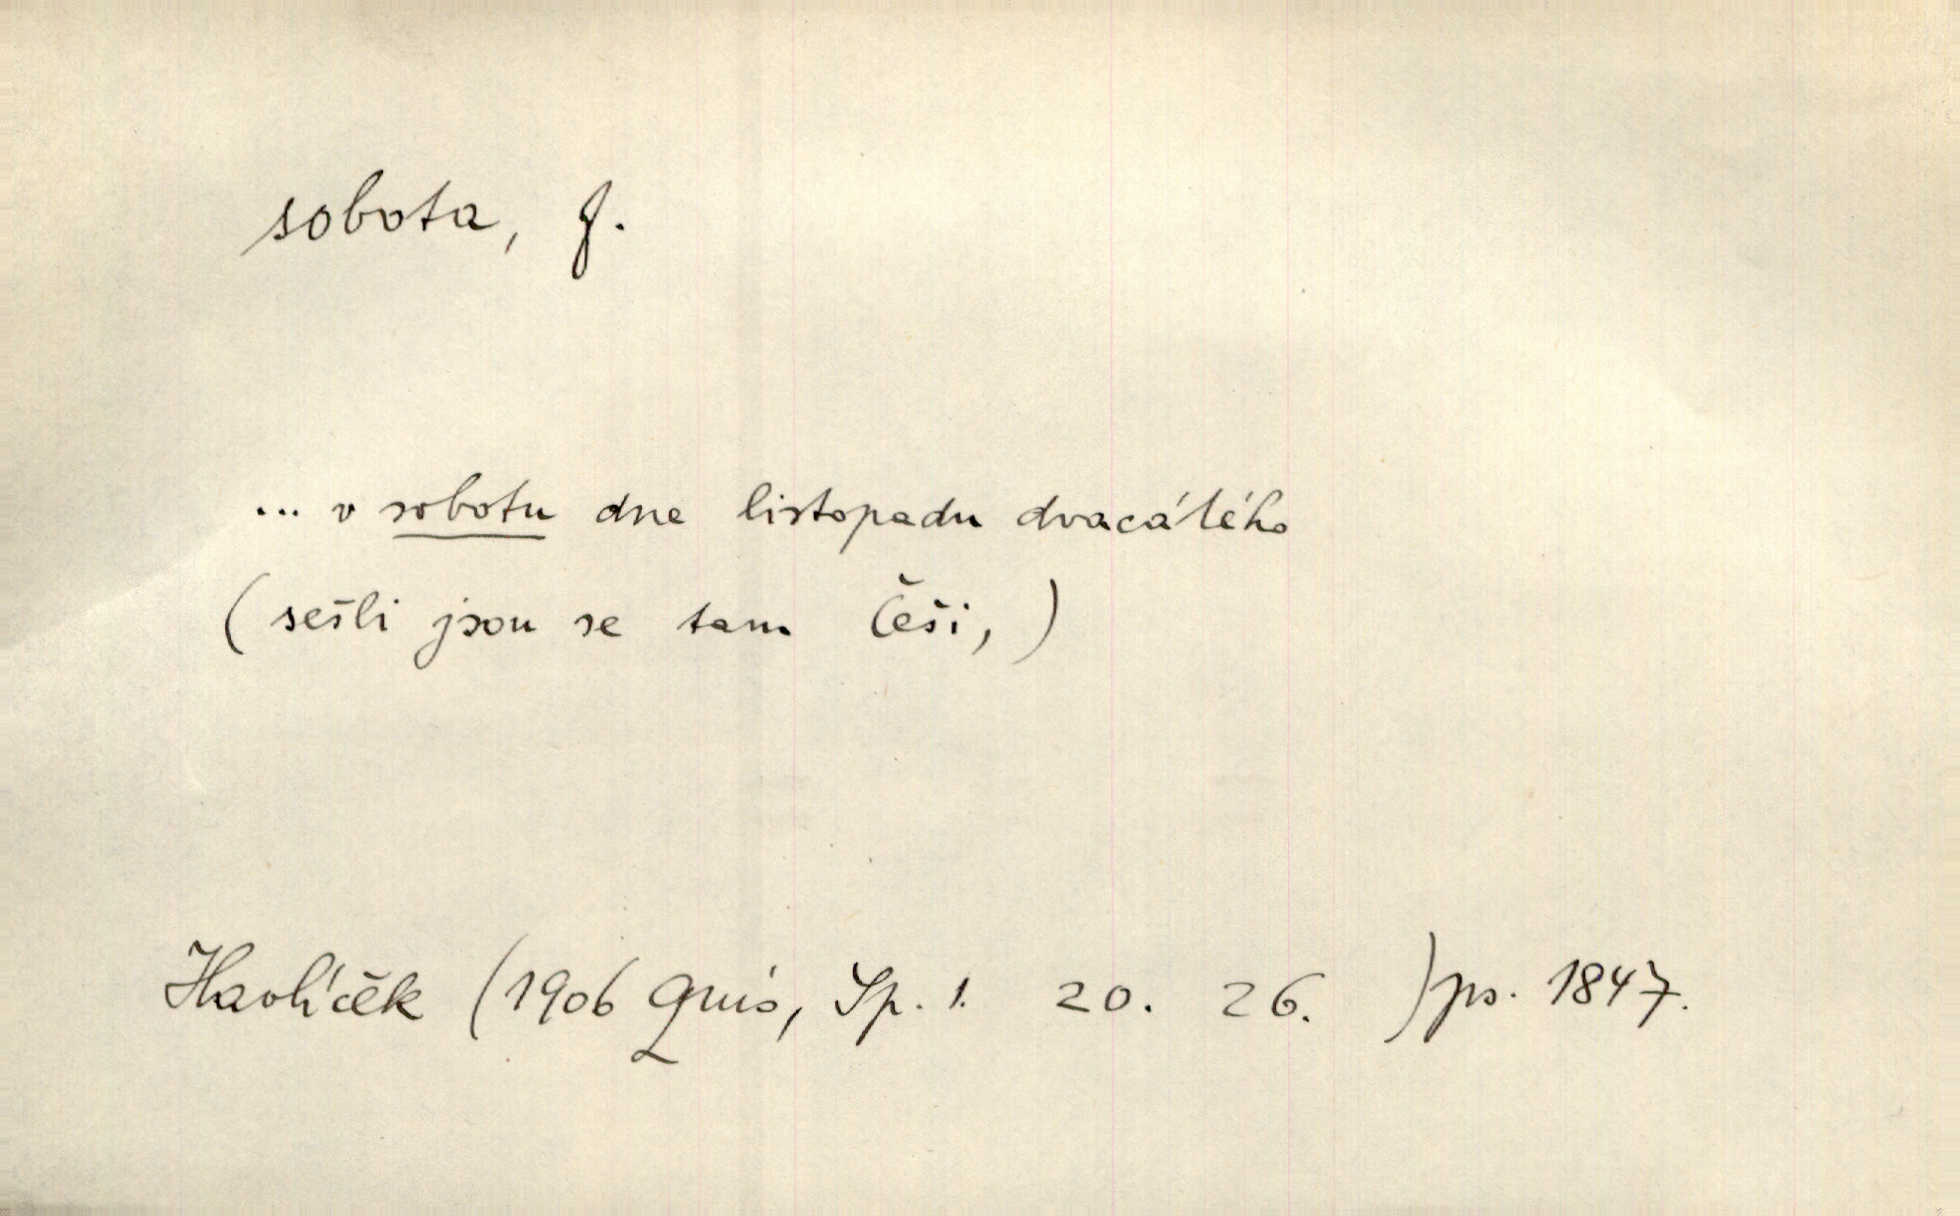 sobota, f.
... v sobotu dne listopadu dvacátého
(sešli jsou se tam Češi,)
Havlíček (1906 Quis, Sp. 1. 20. 26. ) ps. 1847.